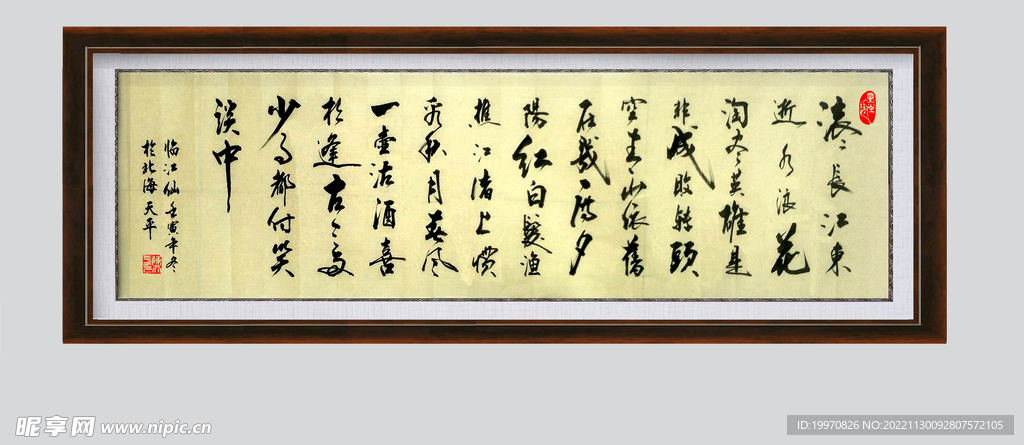 滚滚長江東
逝水浪花
淘尽英雄是
非成败转頭
空青山依舊
在幾度夕
陽红白髮渔
樵江渚上惯
看秋月春风
一壶浊酒喜
相逢古今多
少事都付笑
谈中
临江仙壬寅年冬
於北海天平
昵享网 www.nipic.cn
ID:19970826 NO:20221130092807572105